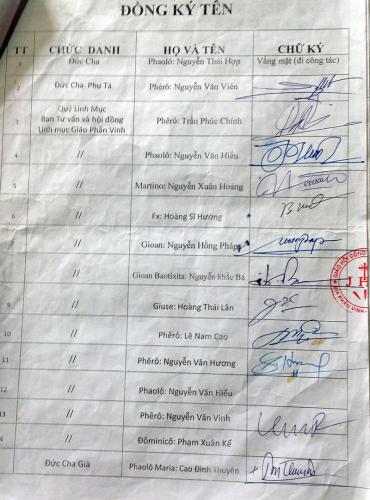 ĐỒNG KÝ TÊN
TT CHỨC DANH HỌ VÀ TÊN CHỮ KÝ
1 Đức Cha Phaolô: Nguyễn Thái Hợp Vắng mặt (đi công tác)
2 Đức Cha Phụ Tá Phêrô: Nguyễn Văn Viên
3 Quý Linh Mục
Ban Tư vấn và hội đồng
Linh mục Giáo Phận Vinh
Phêrô: Trần Phúc Chính
4 // Phaolô: Nguyễn Văn Hiểu
5 // Martino: Nguyễn Xuân Hoàng
6 // Fx: Hoàng Sĩ Hướng
7 // Gioan: Nguyễn Hồng Pháp
// Gioan Baotixita: Nguyễn khắc Bá
9 // Giuse: Hoàng Thái Lân
10 // Phêrô: Lê Nam Cao
11 // Phêrô: Nguyễn Văn Hương
12 // Phaolô: Nguyễn Văn Hiếu
13 // Phêrô: Nguyễn Văn Vinh
4 // Đôminicô: Phạm Xuân Kế
Đức Cha Già Phaolô Maria: Cao Đình Thuyên